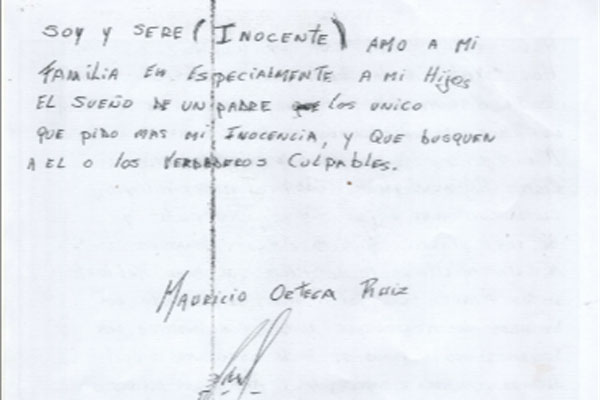 SOY Y SERE (INOCENTE) AMO A MI
FAMILIA EN ESPECIALMENTE A MI HIJOS
EL SUEÑO DE UN PADRE que los UNICO
QUE PIDO MAS MI INOCENCIA, Y QUE BUSQUEN
A EL O los VERDADEROS CULPABLES.
MAURICIO ORTEGA RUIZ